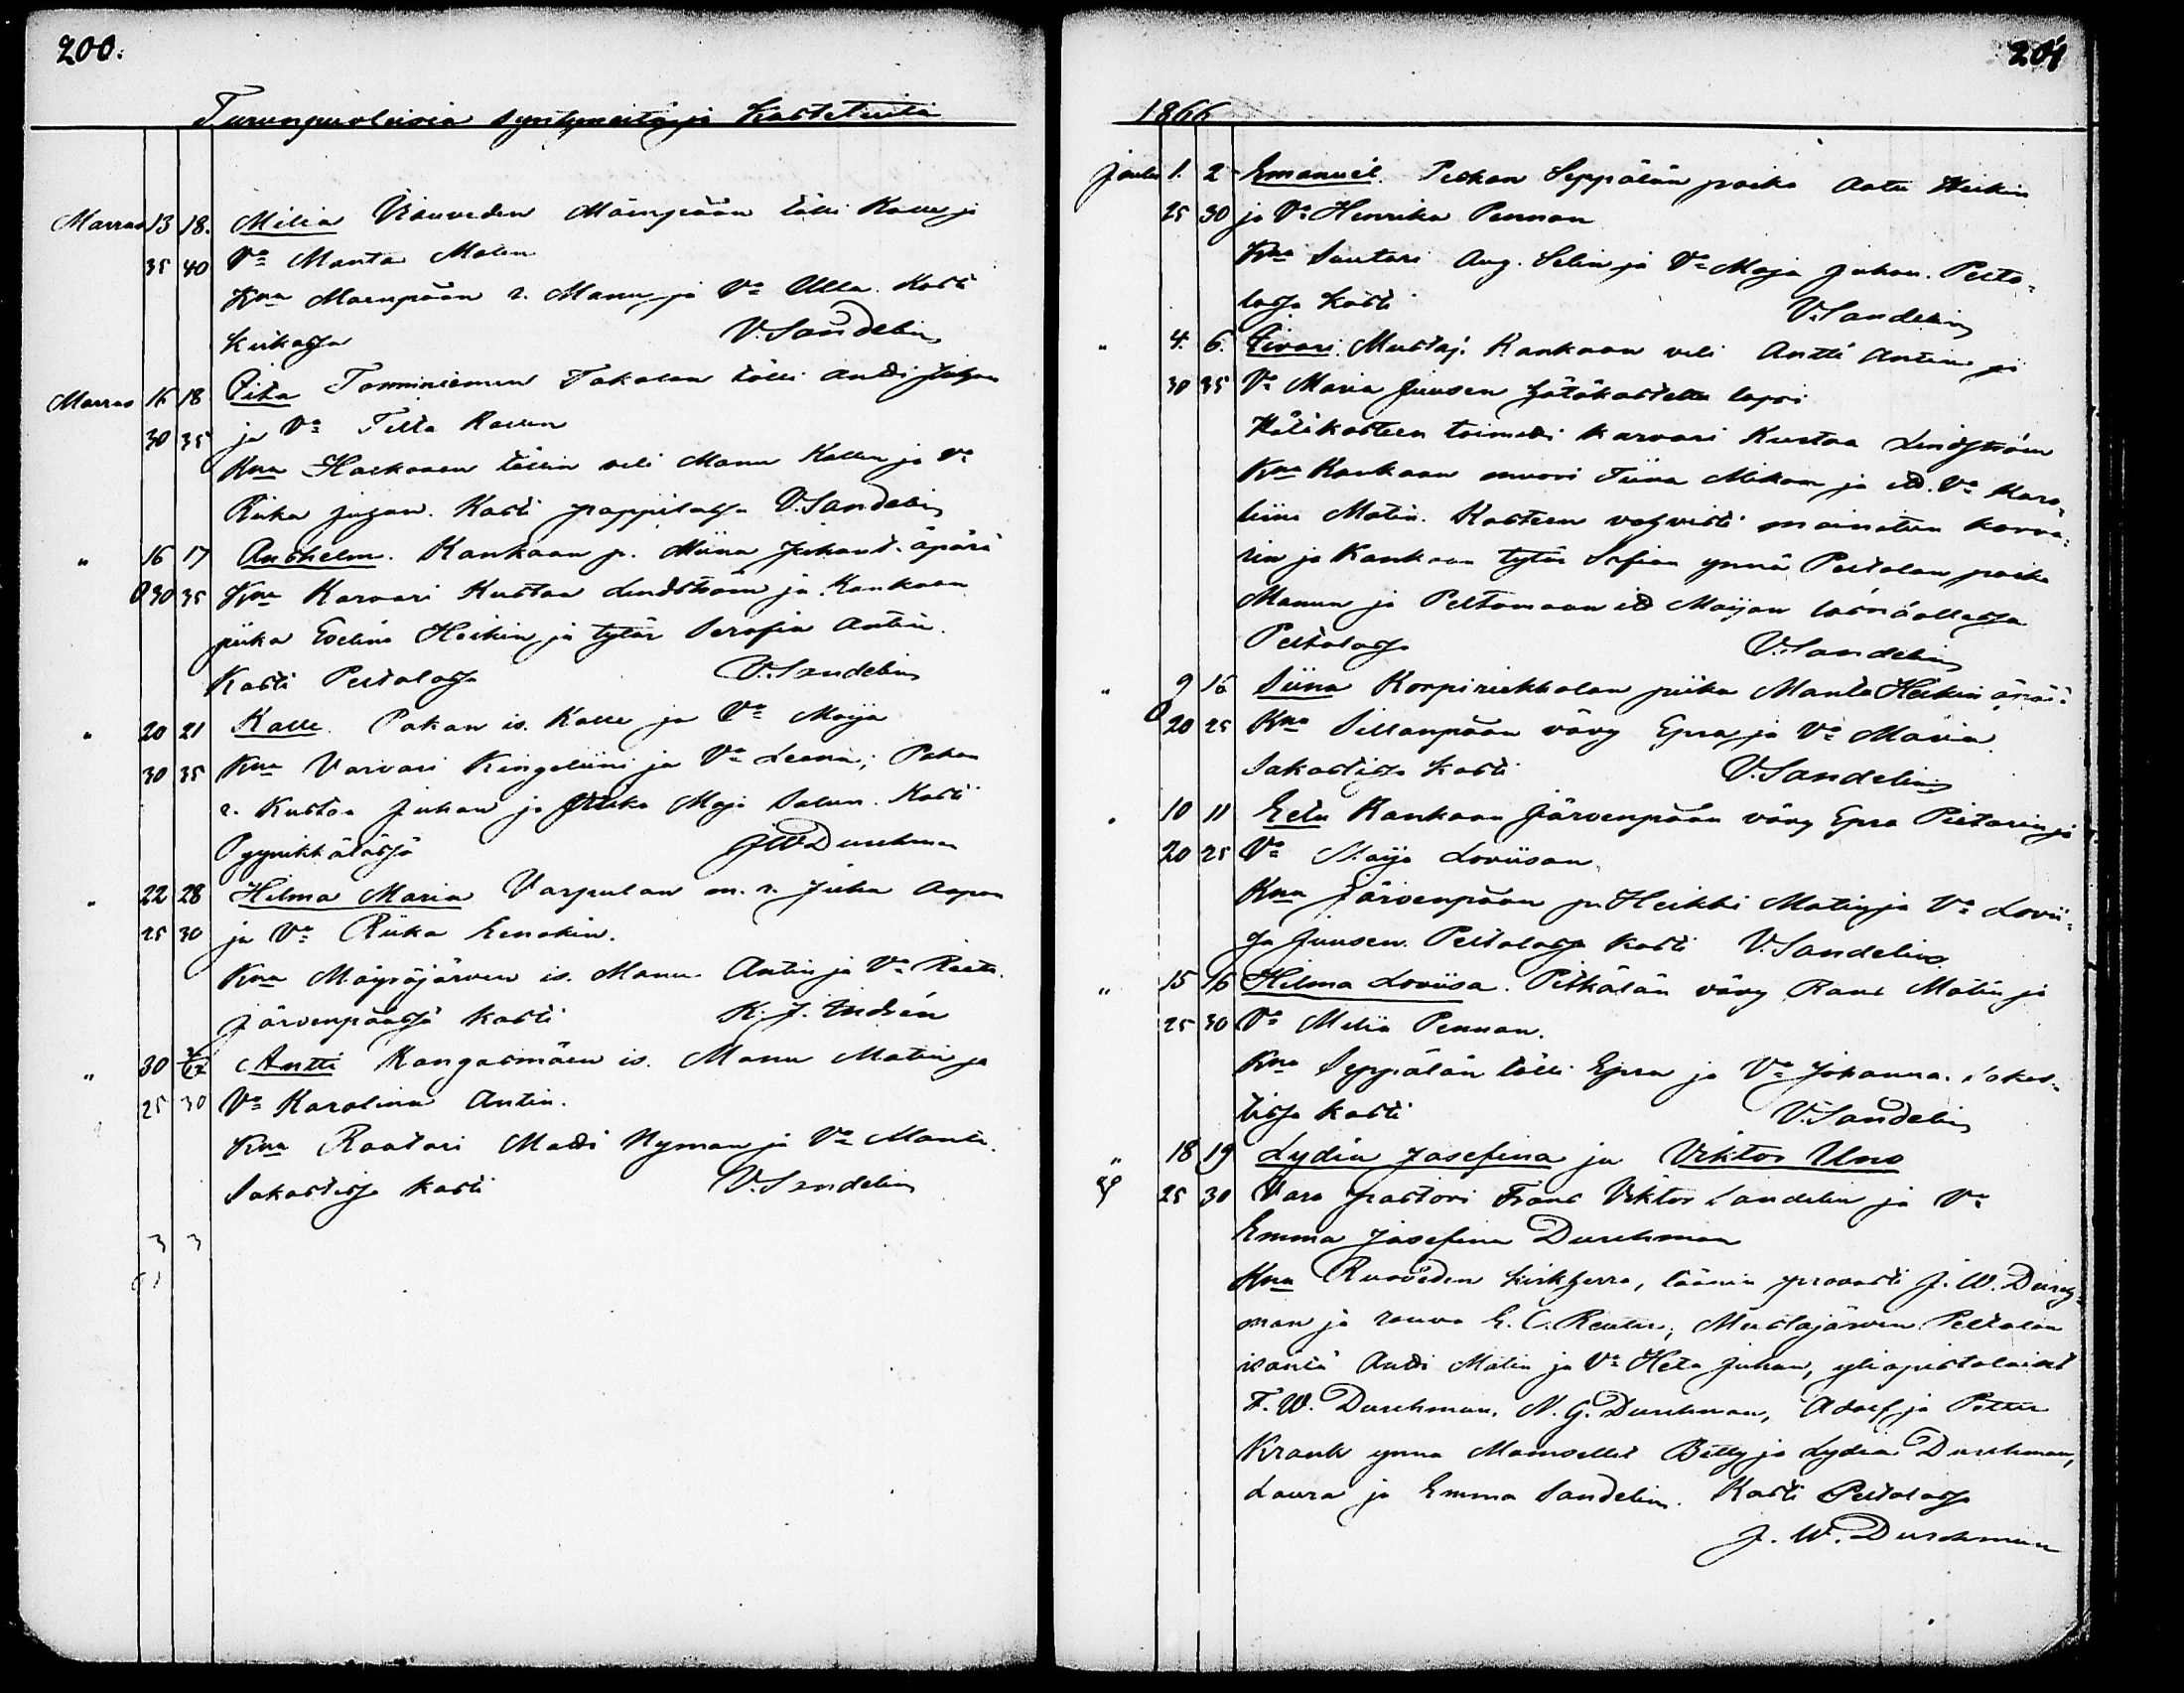 200.
Turunpuoleisia syntyneitä ja Kastetuita
Marras 13 18. Milia Viauveden Mäenpään tölli Kalle ja
35 40 Vo Manta Maten
Kna Mäenpään r. Manu ja Vo Ulla. Kasti
Keikassa V. Sandelin
Marras 16 18 Fika Tomminiemen Takalan tölli Antti Juhan
30 35 ja Vo Tilta Kallen
Kna Hackosen töllin veli Manu Kallen ja Vo
Riika Juhan. Kasti pappilassa V. Sandelin
" 16 17 Anshelm. Kankaan p. Miina Juhant. äpärä
30 35 Kna Karvari Kustaa Lindström ja Kankaan
piika Eveliina Heikin ja tytär Serafia Antin.
Kasti Peltolassa V. Sandelin
" 20 21 Kalle. Pakan is. Kalle ja Vo Maija
30 35 Kna Varvari Kingeliini ja Vo Leena; Pakan
r. Kustaa Juhan ja piika Maja Salun. Kasti
Pyynikkälässä J W Durchman
" 22 28 Hilma Maria Varpulan m. r. Juha Aapon
25 30 ja Vo Riika Eenokin.
Kna Mäyräjärven is. Manu Antin ja Vo Reeta.
Järvenpäässä kasti K. J. Indrén
" 30 Antti Kangasmäen is. Manu Matin ja
25 30 Vo Karolina Antin.
Kna Raatari Matti Nyman ja Vo Manta.
Sakastissa kasti V. Sandelin
3 3
201
1866
Joulu 1. 2 Emanuel. Peskan Seppälän poika Aatu Heikin
25 30 ja Vo Henrika Pennan
Kna Suutari Aug. Selin ja Vo Maja Juhan. Pelto-
lassa kasti V. Sandelin
" 4. 6. Iivari. Mustaj. Kankaan veli Antti Antin ja
30 35 Vo Maria Juusen hätäkastettu lapsi
Hätäkasteen toimitti karvari Kustaa Lindström
Kna Kankaan muori Tiina Mikon ja itl. Vo Karo-
liina Matin. Kasteen vahvisti mainitun karva-
rin ja Kankaan tytär Sofian ynnä Peltolan poika
Manun ja Peltomaan itl Maijan läsnäollessa
Peltolassa V. Sandelin
" 9 16 Siina Korpiriekkolan piika Manta Heikin äpärä
20 25 Kna Sillanpään vävy Epra ja Vo Maria.
Sakastissa kasti V. Sandelin
" 10 11 Eetu Kankaan Järvenpään vävy Epra Pietarin ja
20 25 Vo Maija Loviisan.
Kna Järvenpään p. Heikki Matin ja Vo Lovii-
sa Juusen. Peltolassa kasti V. Sandelin
" 15 16 Hilma Loviisa. Pitkälän vävy Rane Matin ja
25 30 Vo Milia Pennan.
Kna Seppälän tölli Epra ja Vo Johanna. Sakas-
tissa kasti V. Sandelin
" 18 19 Lydia Josefina ja Viktor Uno
25 30 Vara pastori Frans Viktor Sandelin ja Vo
Emma Josefina Durchman
Kna Ruoveden kirkherra, läänin provasti J. W. Durch-
man ja rouva E. C. Reuter, Mustajärven Peltolan
isäntä Antti Matin ja Vo Heta Juhan, yliopistolaiset
F. W. Durchman, N. G. Durchman, Adolf ja Petter
Krank ynnä Mamsellit Betty ja Lydia Durchman,
Laura ja Emma Sandelin. Kasti Peltolassa
J. W. Durchman